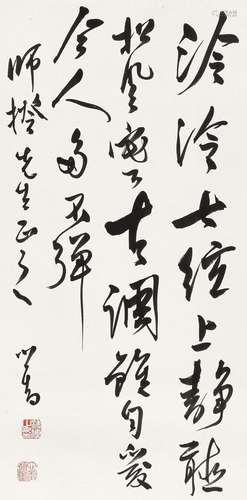 泠泠七絃上靜聽
松風寒古調雖自愛
今人多不彈
師先生正之
心畬